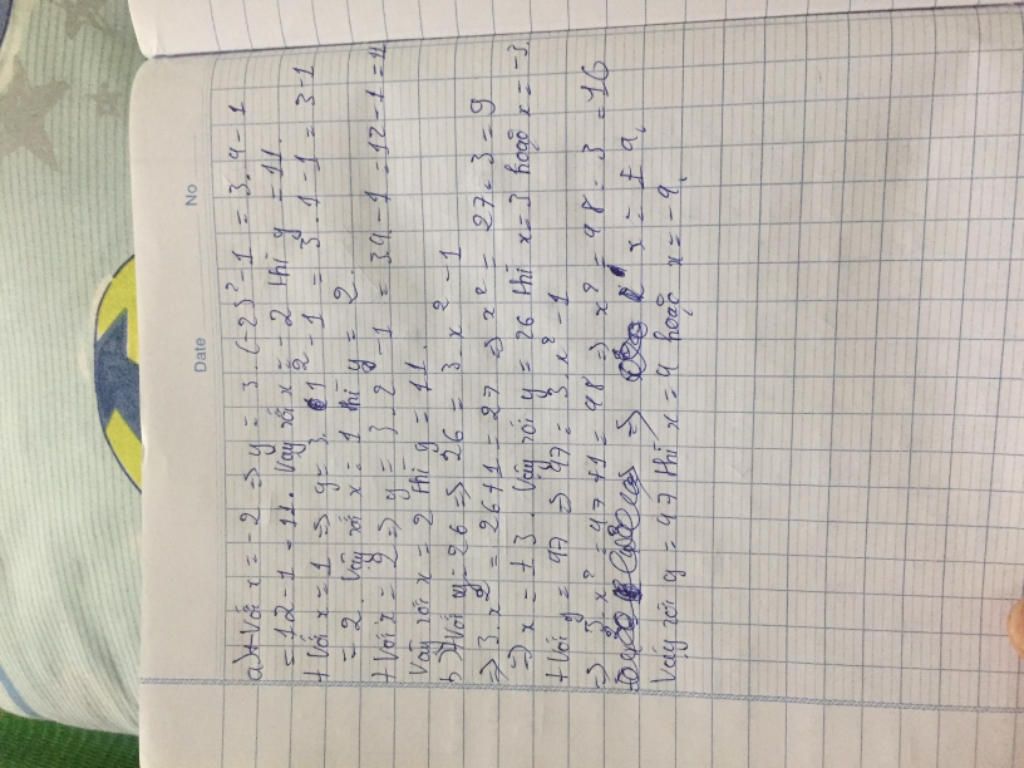 Date No
a)+Với x = -2 => y = 3.(-2)²-1 = 3.4-1
= 12-1 = 11. Vậy với x = -2 thì y = 11.
+ Với x = 1 => y = 3. 1² - 1 = 3.1-1 = 3-1
= 2. Vậy với x = 1 thì y = 2.
+ Với x = 2 => y = 3.2² - 1 = 3.4 - 1 = 12-1 = 11
Vậy với x = 2 thì y = 11.
b)+Với y = 26 => 26 = 3.x² - 1
=> 3.x² = 26+1 = 27 => x² = 27:3 = 9
=> x = ±3. Vậy với y = 26 thì x = 3 hoặc x = -3.
+ Với y = 47 => 47 = 3.x² - 1
=> 3.x² = 47+1 = 48 => x² = 48:3 = 16
=> x = ±4.
Vậy với y = 47 thì x = 4 hoặc x = -4.